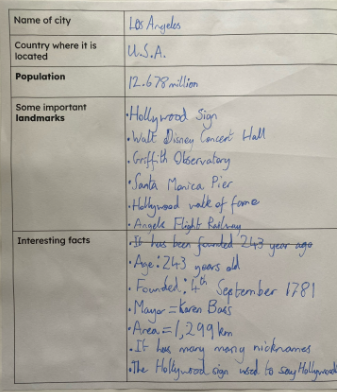 Name of city
Los Angeles
Country where it is
located
U.S.A.
Population
12.678 million
Some important
landmarks
•Hollywood Sign
•Walt Disney Concert Hall
•Griffith Observatory
•Santa Monica Pier
•Hollywood walk of fame
•Angels Flight Railway
Interesting facts
•It has been founded 243 year ago
•Age: 243 years old
•Founded: 4th September 1781
•Mayor = Karen Bass
•Area = 1,299 km
•It has many many nicknames
•The Hollywood sign used to say Hollywood